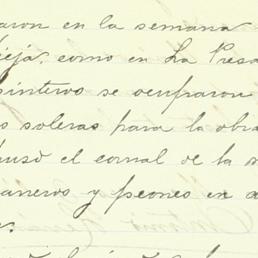 aron en la semana
ieja, como en La Presa
pinteros se ocuparon
s soleras para la obra
puso el cornal de la
aneros y peones en a